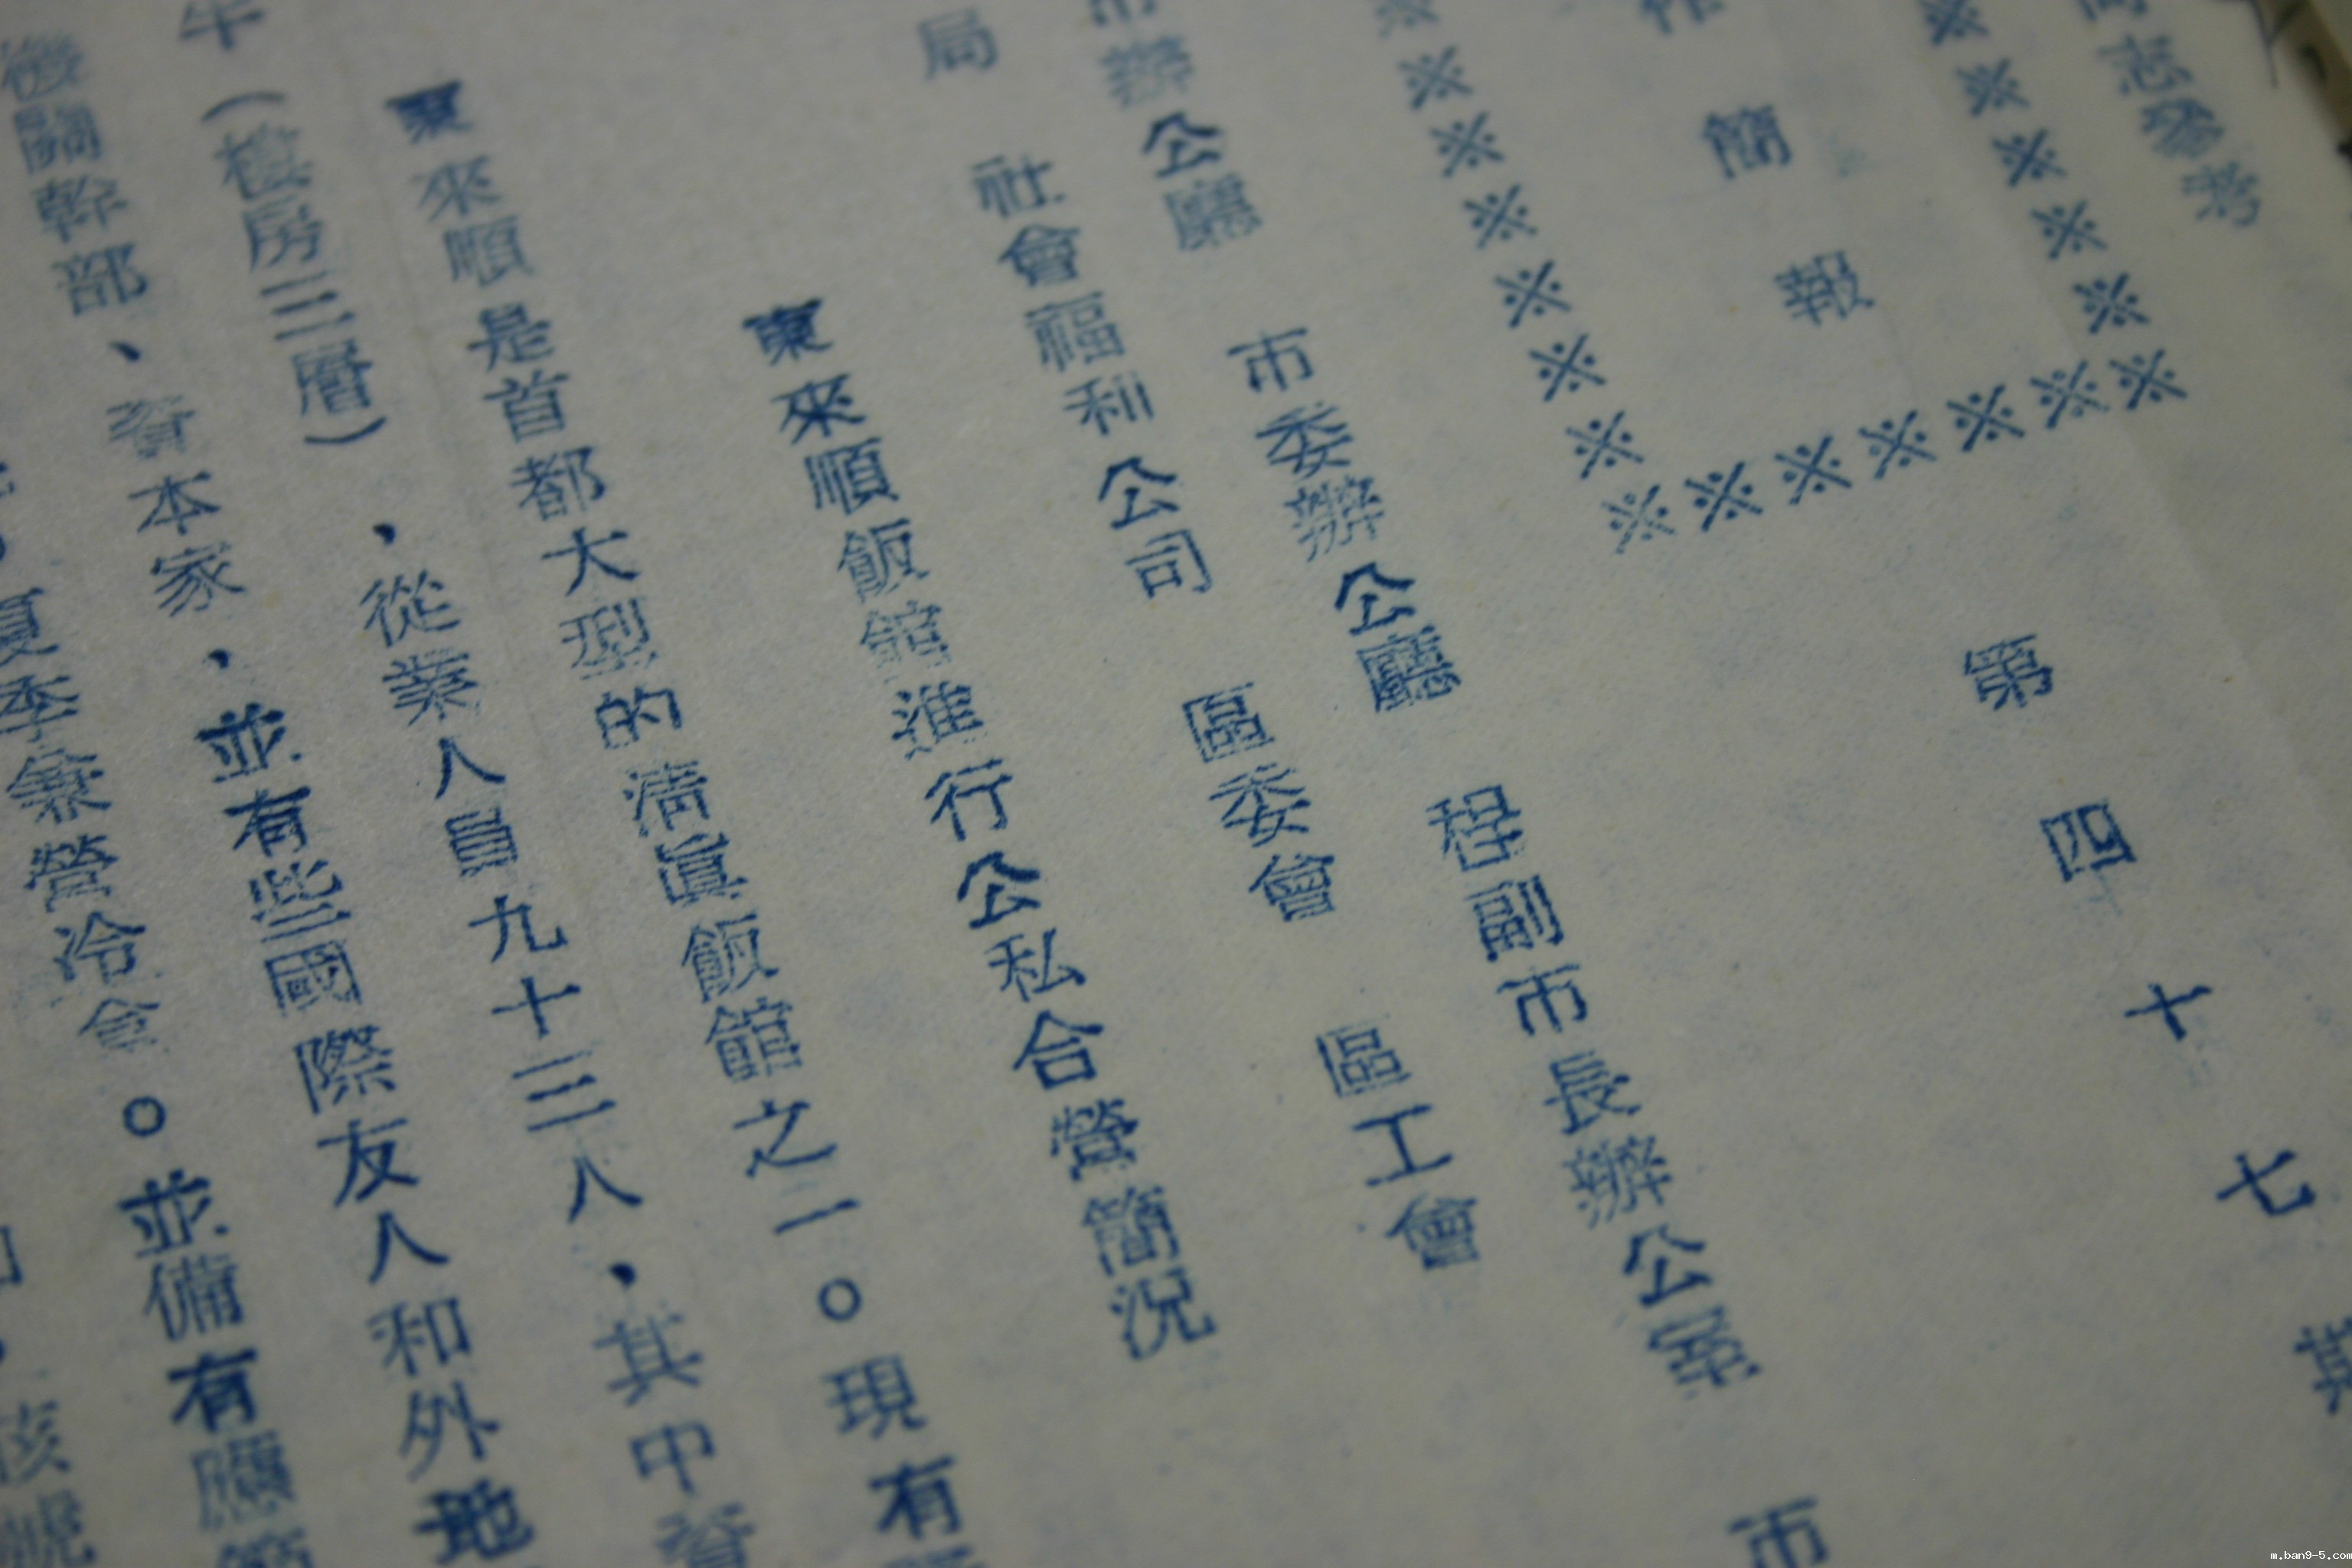 同志參考
作簡報
※※※※※
※※※※※※※
※※※※※※※
第四十七期
市辦公廳 市委辦公廳 程副市長辦公室 市
局 社會福利公司 區委會 區工會
東來順飯館進行公私合營簡況
東來順是首都大型的清真飯館之一。現有
(樓房三層)、從業人員九十三人、其中資
機關幹部、資本家、並有些國際友人和外地
夏季兼營冷食。並備有應節
核
m.ban9-5.com